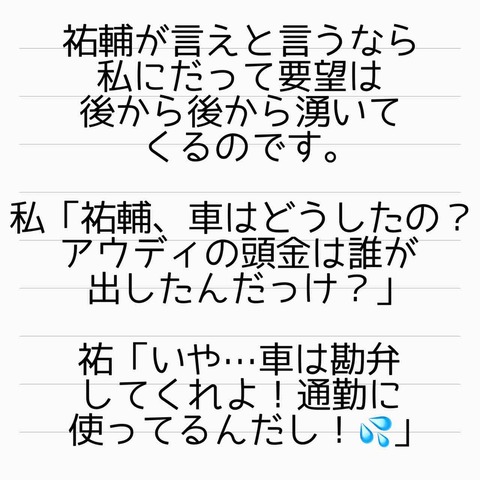 祐輔が言えと言うなら
私にだって要望は
後から後から湧いて
くるのです。
私「祐輔、車はどうしたの？
アウディの頭金は誰が
出したんだっけ？」
祐「いや…車は勘弁
してくれよ！通勤に
使ってるんだし！💦」